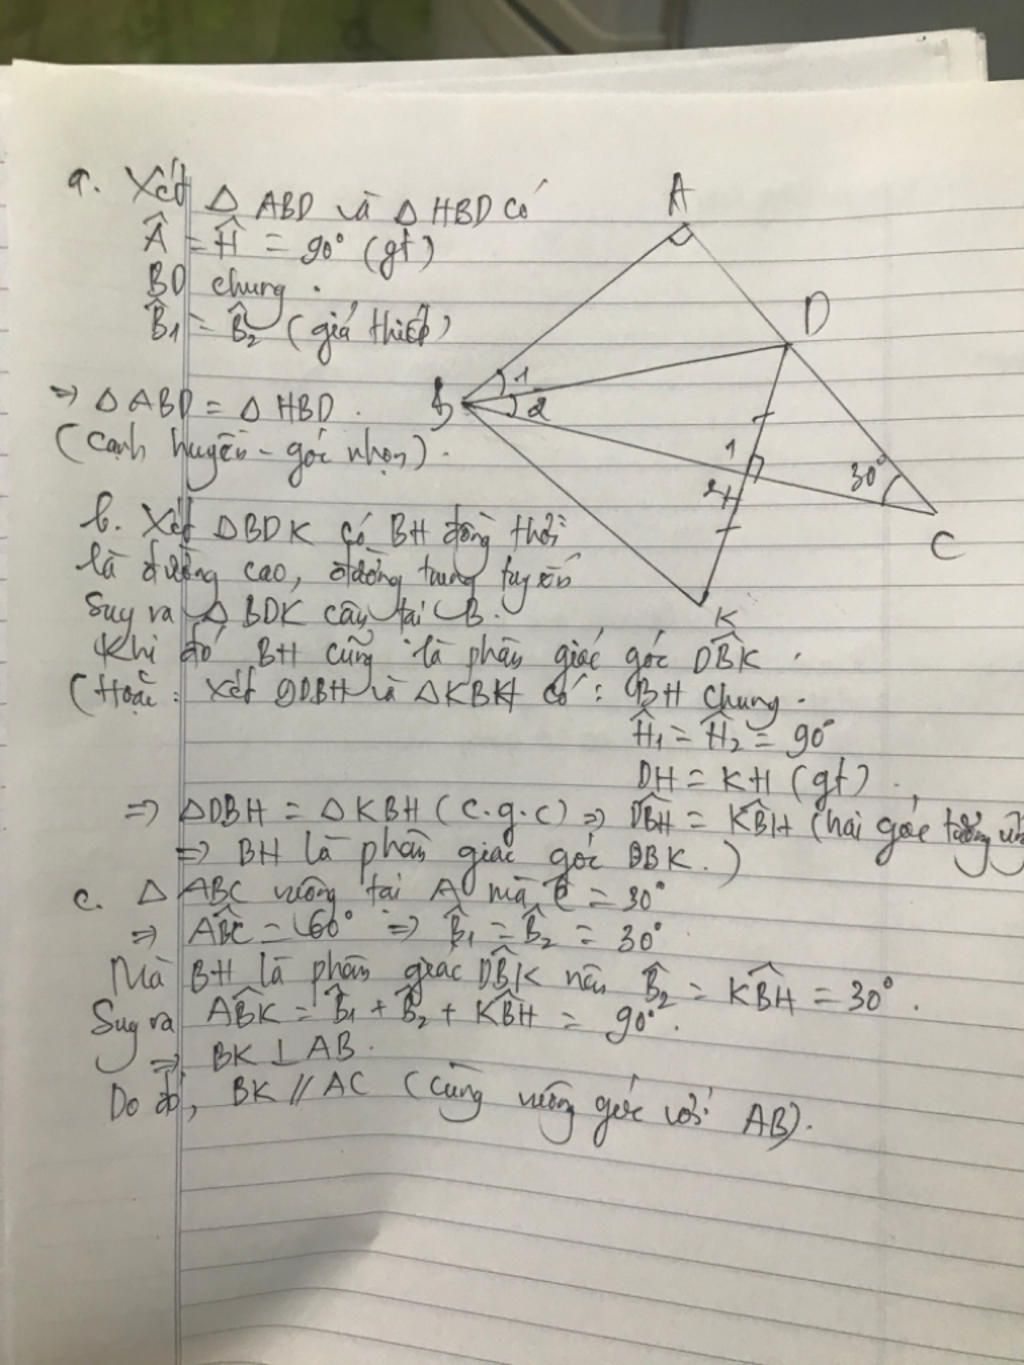 a. Xét △ ABD và △ HBD có
Â = Ĥ = 90° (gt)
BD chung.
B̂₁ = B̂₂ (giả thiết)
⇒ △ ABD = △ HBD.
(cạnh huyền - góc nhọn).
b. Xét △BDK có BH đồng thời
là đường cao, đường trung tuyến
Suy ra △ BDK cân tại B.
Khi đó BH cũng là phân giác góc DB̂K.
(Hoặc: Xét △DBH và △KBH có: BH chung.
Ĥ₁ = Ĥ₂ = 90°
DH = KH (gt).
⇒ △DBH = △KBH (c.g.c) ⇒ DB̂H = KB̂H (hai góc tương ứng
⇒ BH là phân giác góc DBK.)
c. △ ABC vuông tại A mà Ĉ = 30°
⇒ AB̂C = 60° ⇒ B̂₁ = B̂₂ = 30°
Mà BH là phân giác DB̂K nên B̂₂ = KB̂H = 30°.
Suy ra AB̂K = B̂₁ + B̂₂ + KB̂H = 90°.
⇒ BK ⊥ AB.
Do đó, BK // AC (cùng vuông góc với AB).
A
D
B
1
2
1
2
H
30°
C
K